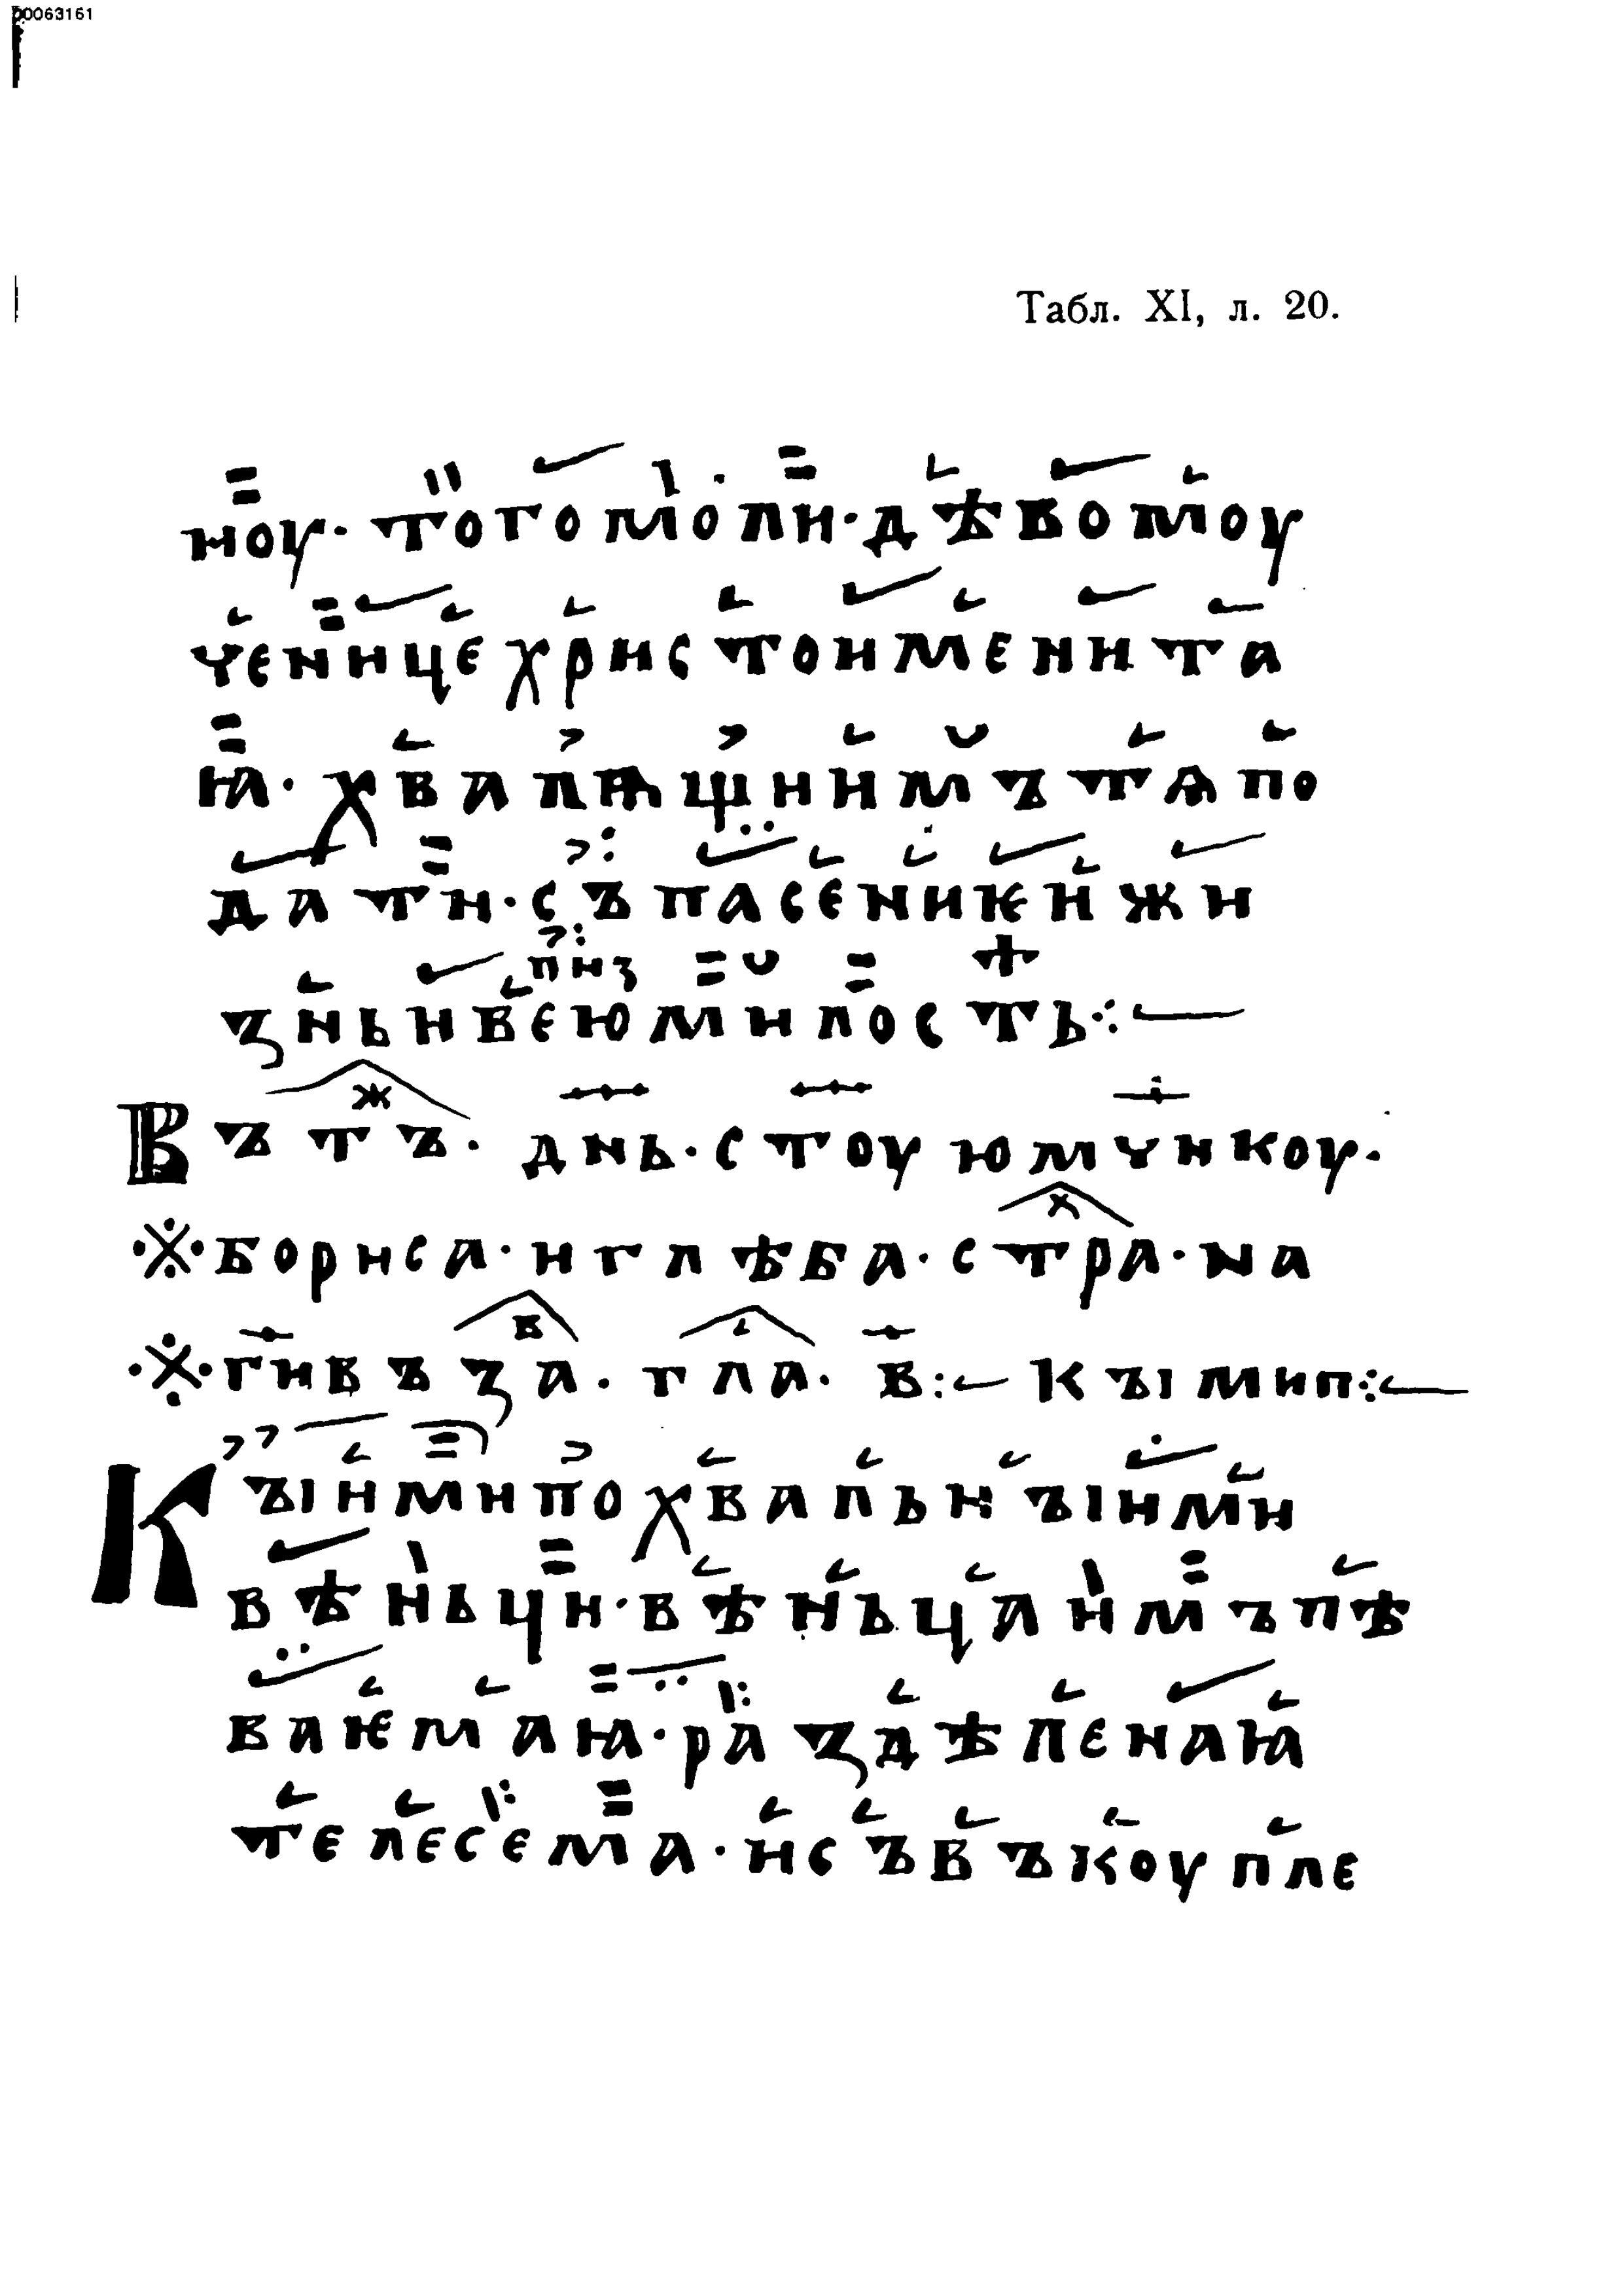 00063161
Табл. XI, л. 20.
ноу· того моли· дѣво моу
ченице христоименита
ꙗ· хвалѧщиимъ тѧ по
дати· съпасениѥ и жи
пиз
знь и веюмилость⁘
Въ тъ ж · днь· стоую мчнкоу·
※ бориса· и глѣба· стра х · на
※ ги въза в · гла · в:– кыми п⁘
Кꙑими похвальнꙑими
вѣньци· вѣньцаимъ пѣ
ваѥмаꙗ· раздѣленаꙗ
телесема· и съвъкоупле